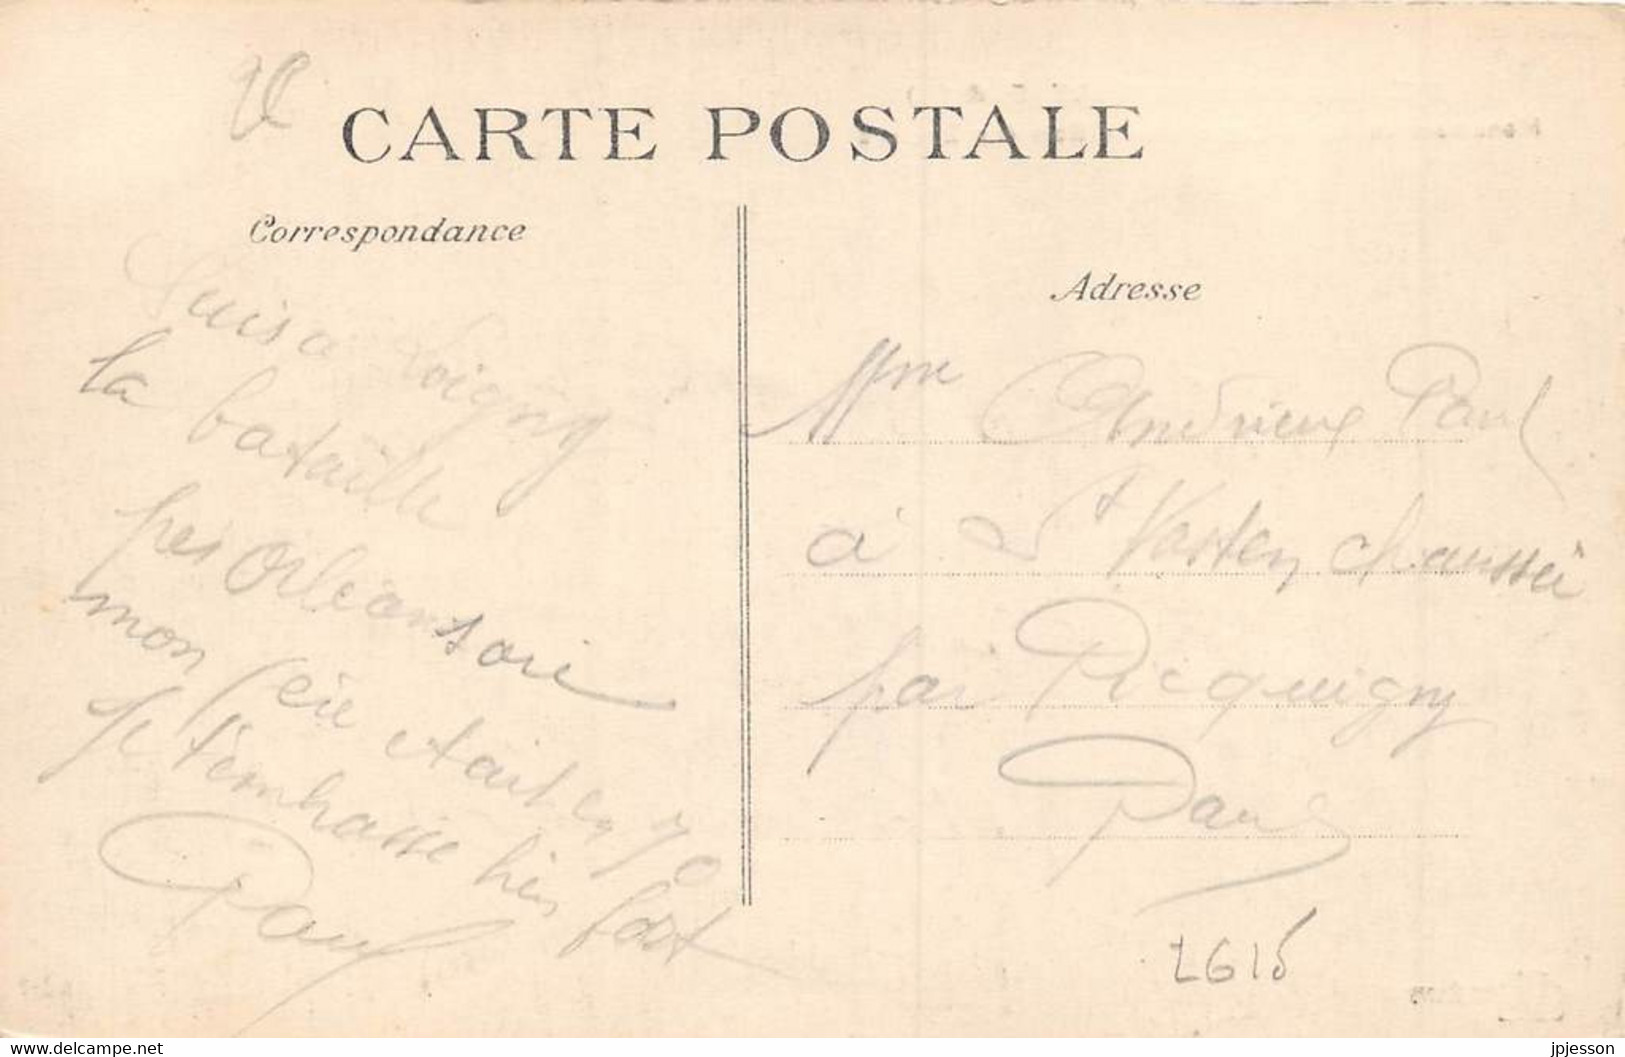 CARTE POSTALE
Correspondance
Suis a Loigny
la bataille
pres Orleans
mon etait en 70
je t'embrasse bien fort
Paul
Adresse
Mme Andrieux Paul
à St Vast en chaussée
par Picquigny
2615
www.delcampe.net
jpjesson